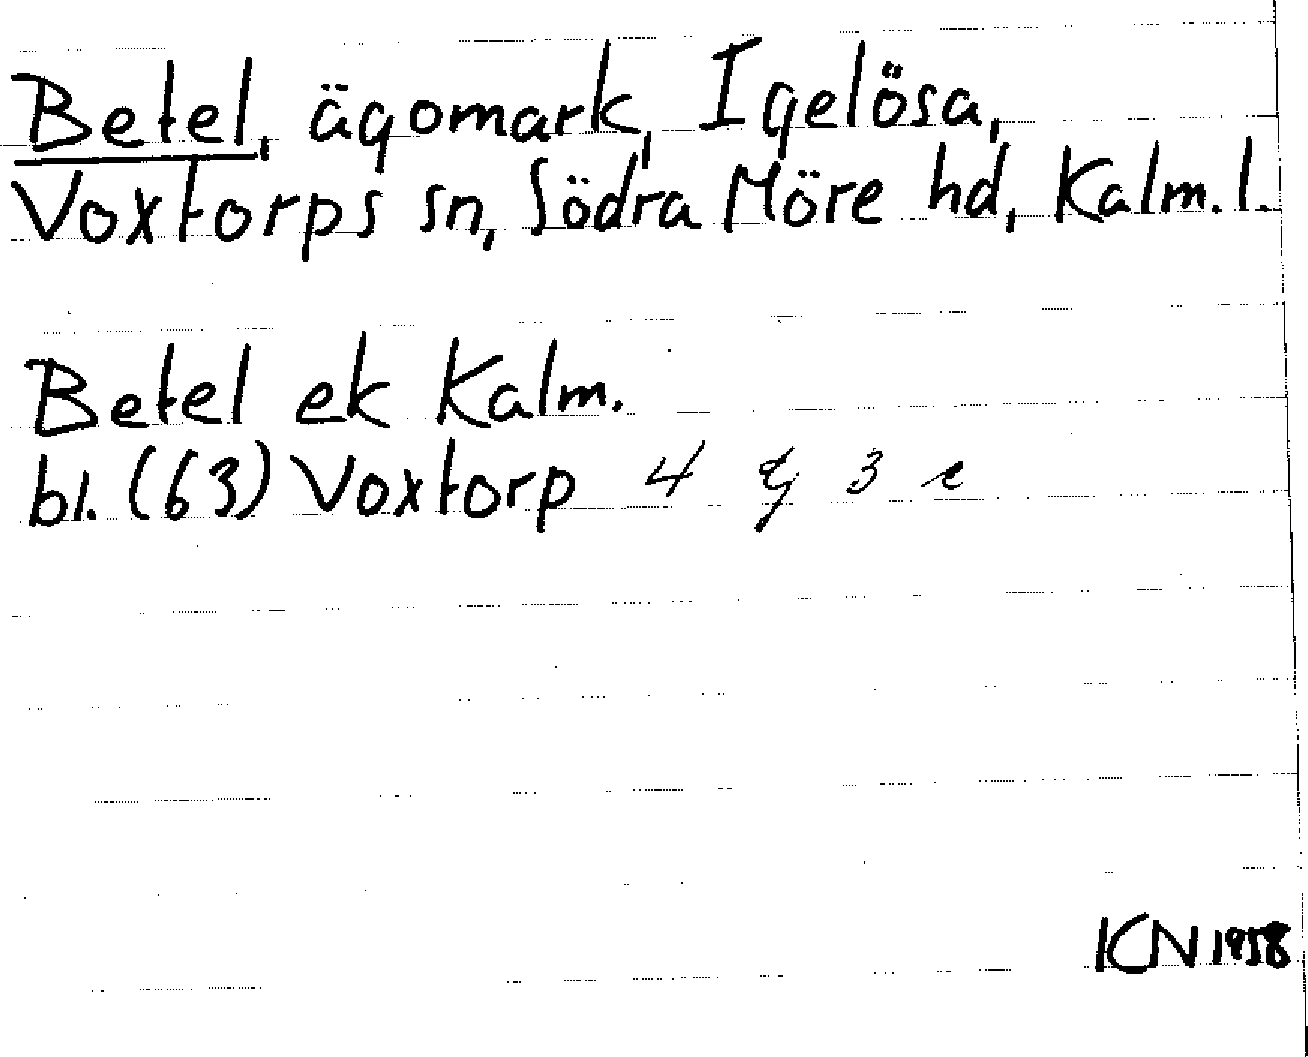 Betel, ägomark, Igelösa,
Voxtorps sn, Södra Möre hd, Kalm. l.
Betel ek Kalm.
bl. (63) Voxtorp 4 g 3 e
KN 1958